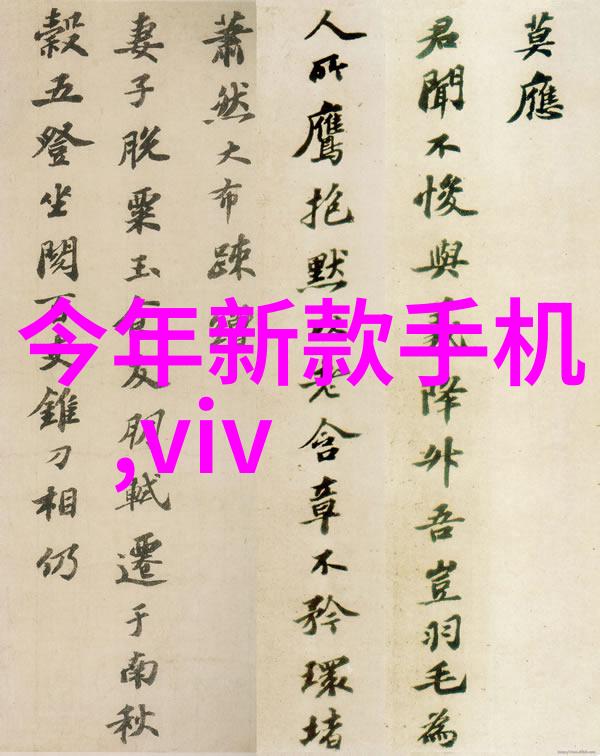 今年新款手机
,viv
莫應
君聞不悛與義降外吾豈羽毛為
人所鷹抱默老含章不矜環堵
蕭然大布疎
妻子脫粟玉食友朋軾遷于南秋
穀五登坐閱百吏錐刀相仍